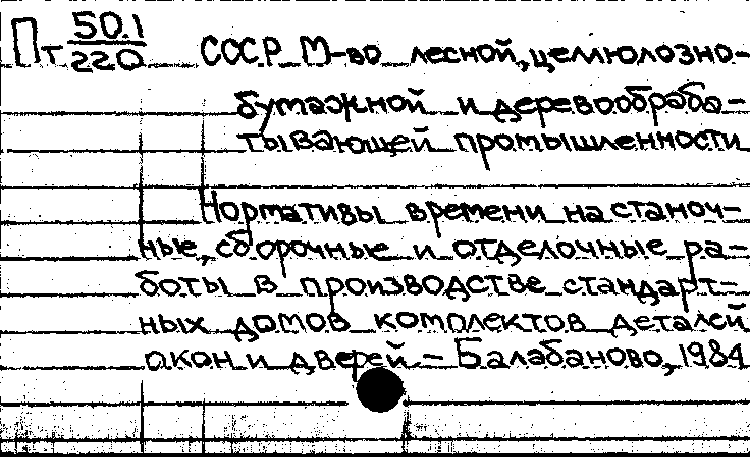 Пт 50.1/220 СССР М-во лесной, целлюлозно-
бумажной и деревообраба-
тывающей промышленности
Нормативы времени на станоч-
ные, сборочные и отделочные ра-
боты в производстве стандарт-
ных домов комплектов деталей
окон и дверей. – Балабаново, 1984